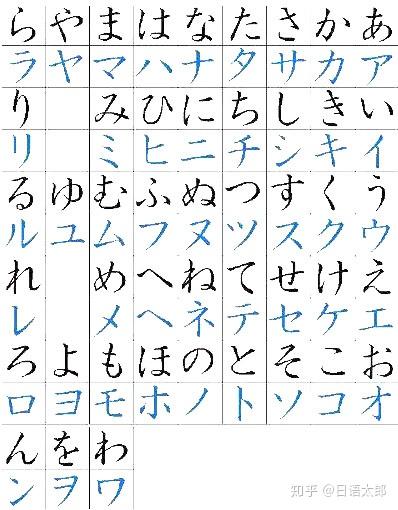 らやまはなたさかあ
ラヤマハナタサカア
り みひにちしきい
リ ミヒニチシキイ
るゆむふぬつすくう
ルユムフヌツスクウ
れ めへねてせけえ
レ メヘネテセケエ
ろよもほのとそこお
ロヨモホノトソコオ
んをわ
ンヲワ
知乎 @日语太郎